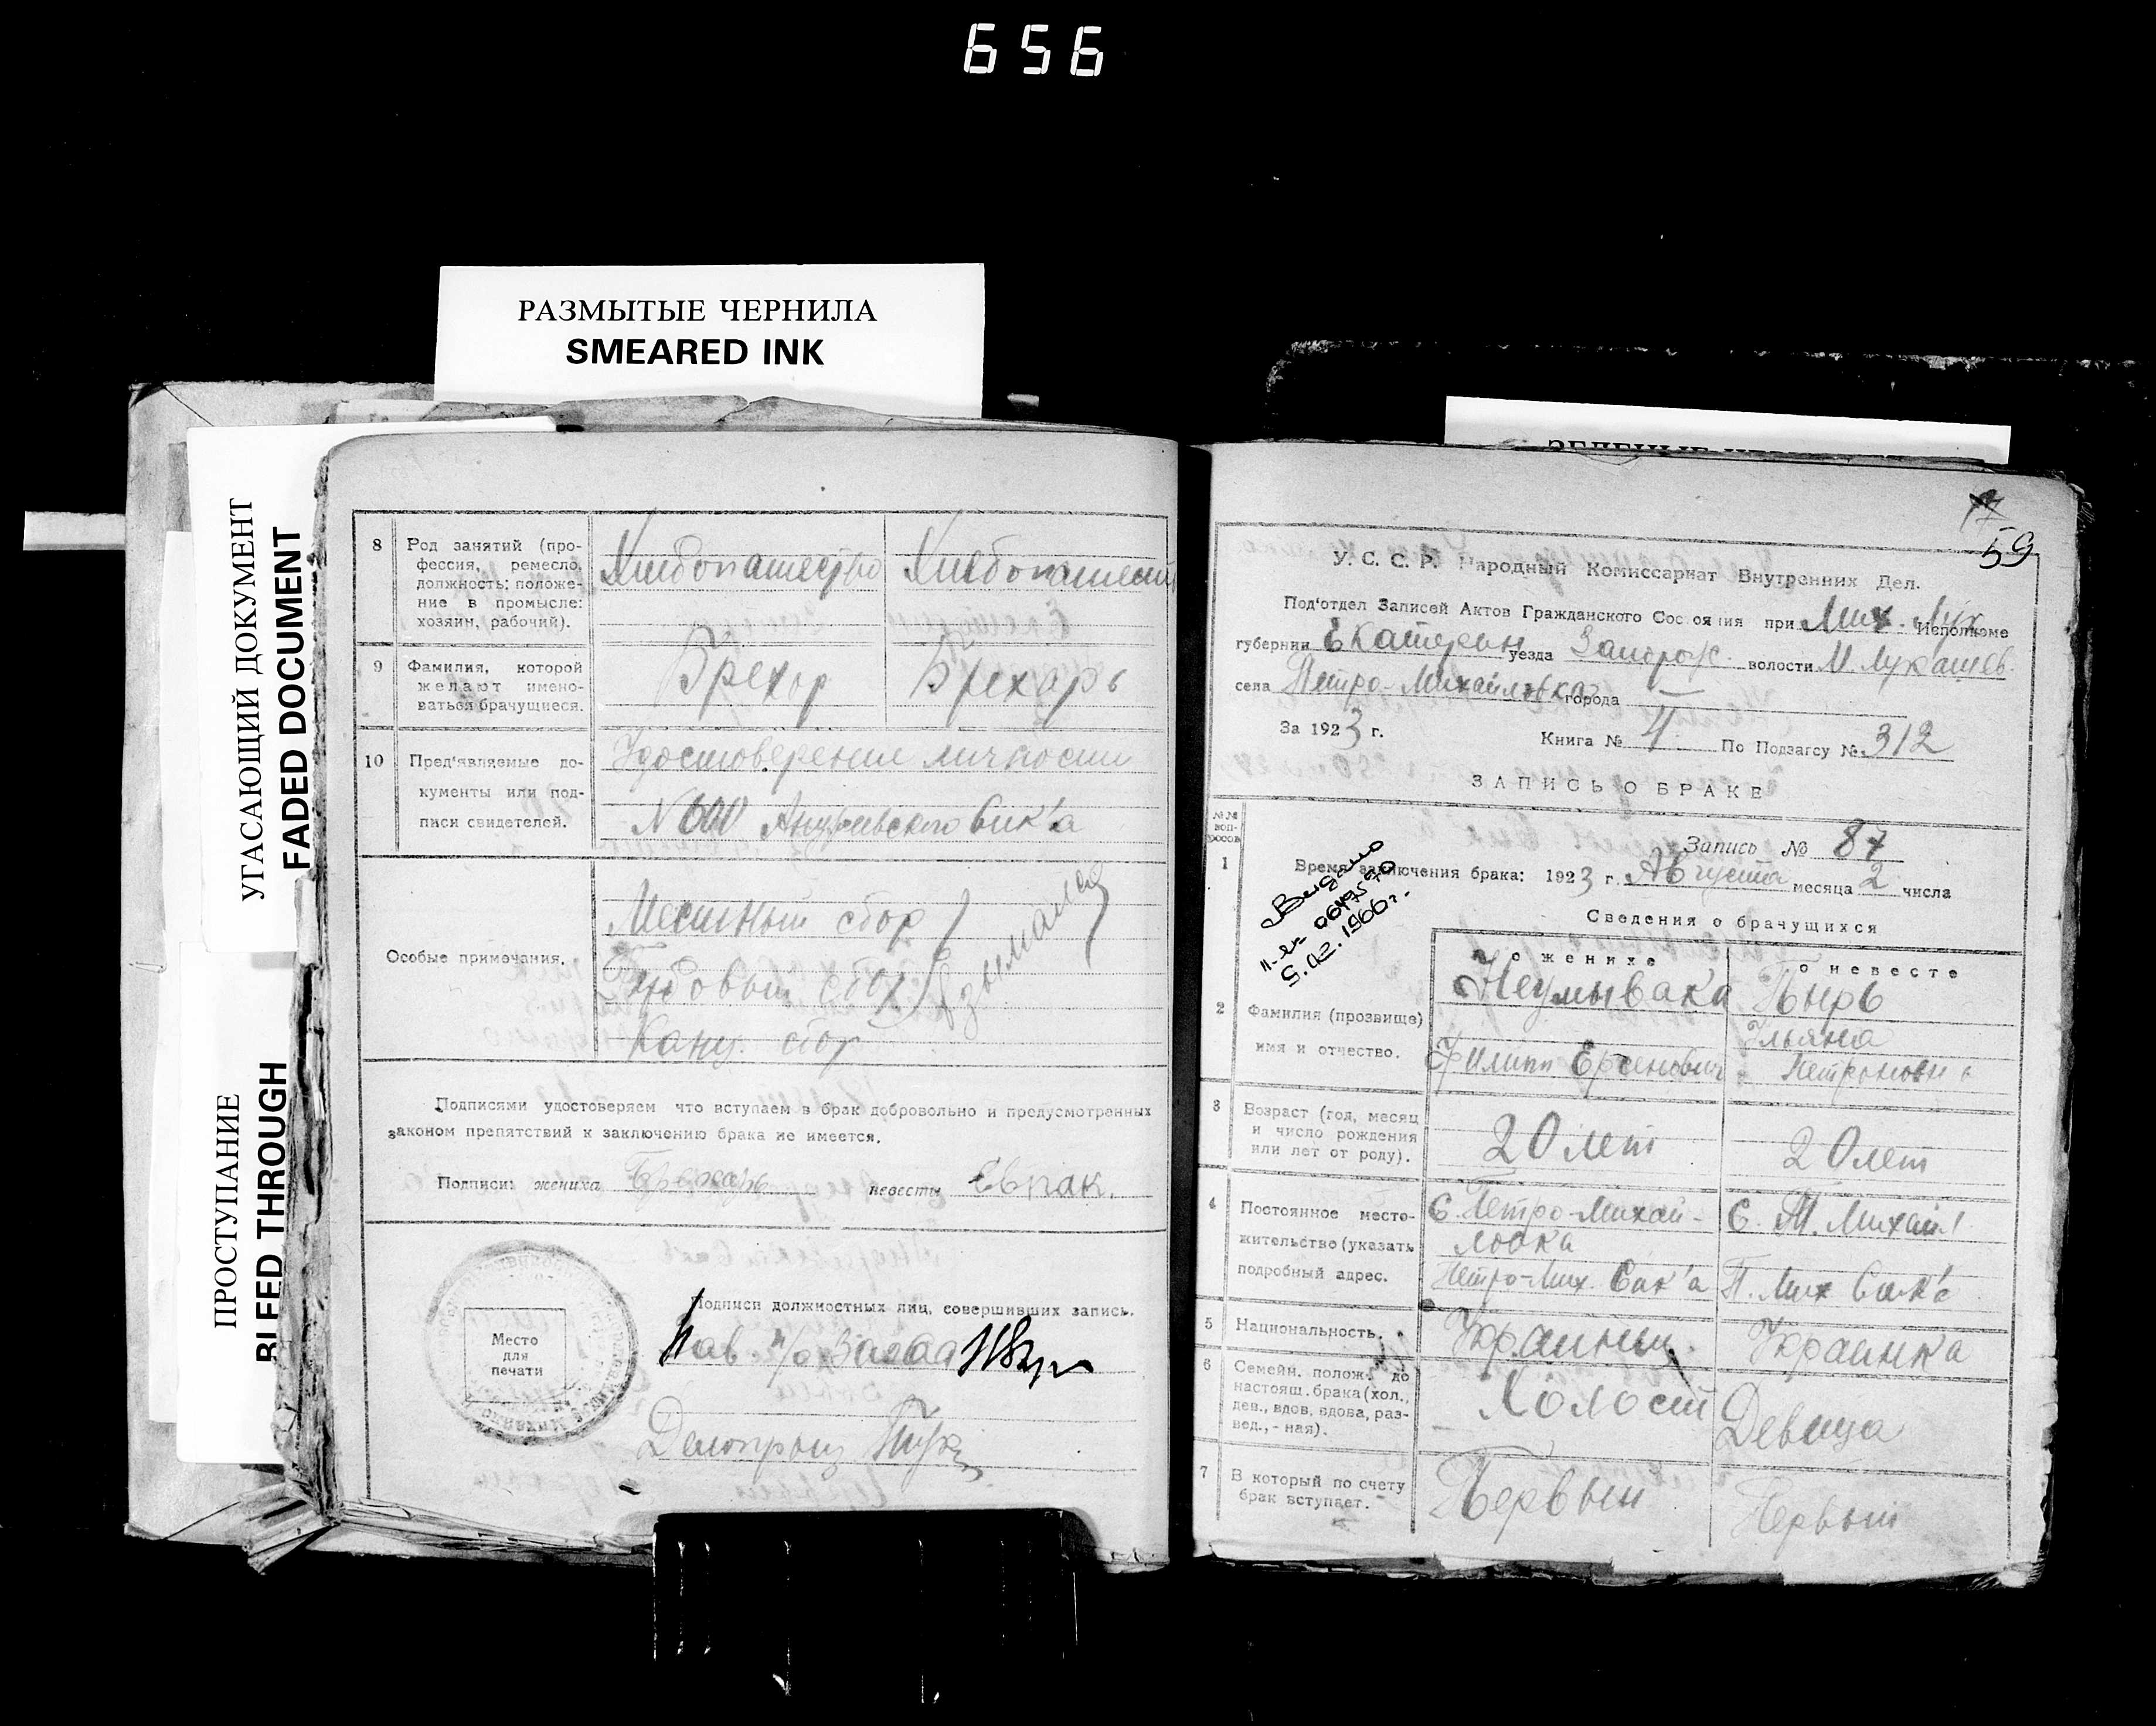 656
РАЗМЫТЫЕ ЧЕРНИЛА
SMEARED INK
УГАСАЮЩИЙ ДОКУМЕНТ
FADED DOCUMENT
ПРОСТУПАНИЕ
BLEED THROUGH
8 Род занятий (про-
фессия, ремесло,
должность; положе-
ние в промысле:
хозяин, рабочий).
Хлебопашество Хлебопашест
9 Фамилия, которой
желают имено-
ваться брачущиеся.
Брехарь Брехарь
10 Пред'являемые до-
кументы или под-
писи свидетелей.
Удостоверение личности
№ 600 Вик'а
Особые примечания.
Местный сбор
сбор Взымался
Канц. сбор
Подписями удостоверяем что вступаем в брак добровольно и предусмотренных
законом препятствий к заключению брака не имеется.
Подписи: жениха Брехарь невесты
Подписи должностных лиц, совершивших запись.
Место
для
печати
Зав. п/о Загса
Делопроиз
17
59
У. С. С. Р. Народный Комиссариат Внутренних Дел.
Под'отдел Записей Актов Гражданского Состояния при Мих. Лук Исполкоме
губернии Екатерин уезда Запорож. волости М. Лукашев.
села Петро-Михайловка города —
За 1923 г. Книга № II По Подзагсу № 312
ЗАПИСЬ О БРАКЕ
№№
воп-
росов
Запись № 87
1 Время заключения брака: 1923 г. Августа месяца 2 числа
Выдано
5.02.1966г.
Сведения о брачущихся
о женихе о невесте
2 Фамилия (прозвище)
имя и отчество.
Неумывака Пырь
Ульяна
Филипп Петровна
3 Возраст (год, месяц
и число рождения
или лет от роду).
20 лет 20 лет
4 Постоянное место-
жительство (указать
подробный адрес.
С. Петро-Михай- С. П. Михайл
ловка
Петро-Мих. Вик'а П. Мих Вик'а
5 Национальность.
Украинец Украинка
6 Семейн. полож. до
настоящ. брака (хол.,
дев., вдов, вдова, раз-
вед., - ная).
Холост Девица
7 В который по счету
брак вступает.
Первый Первый